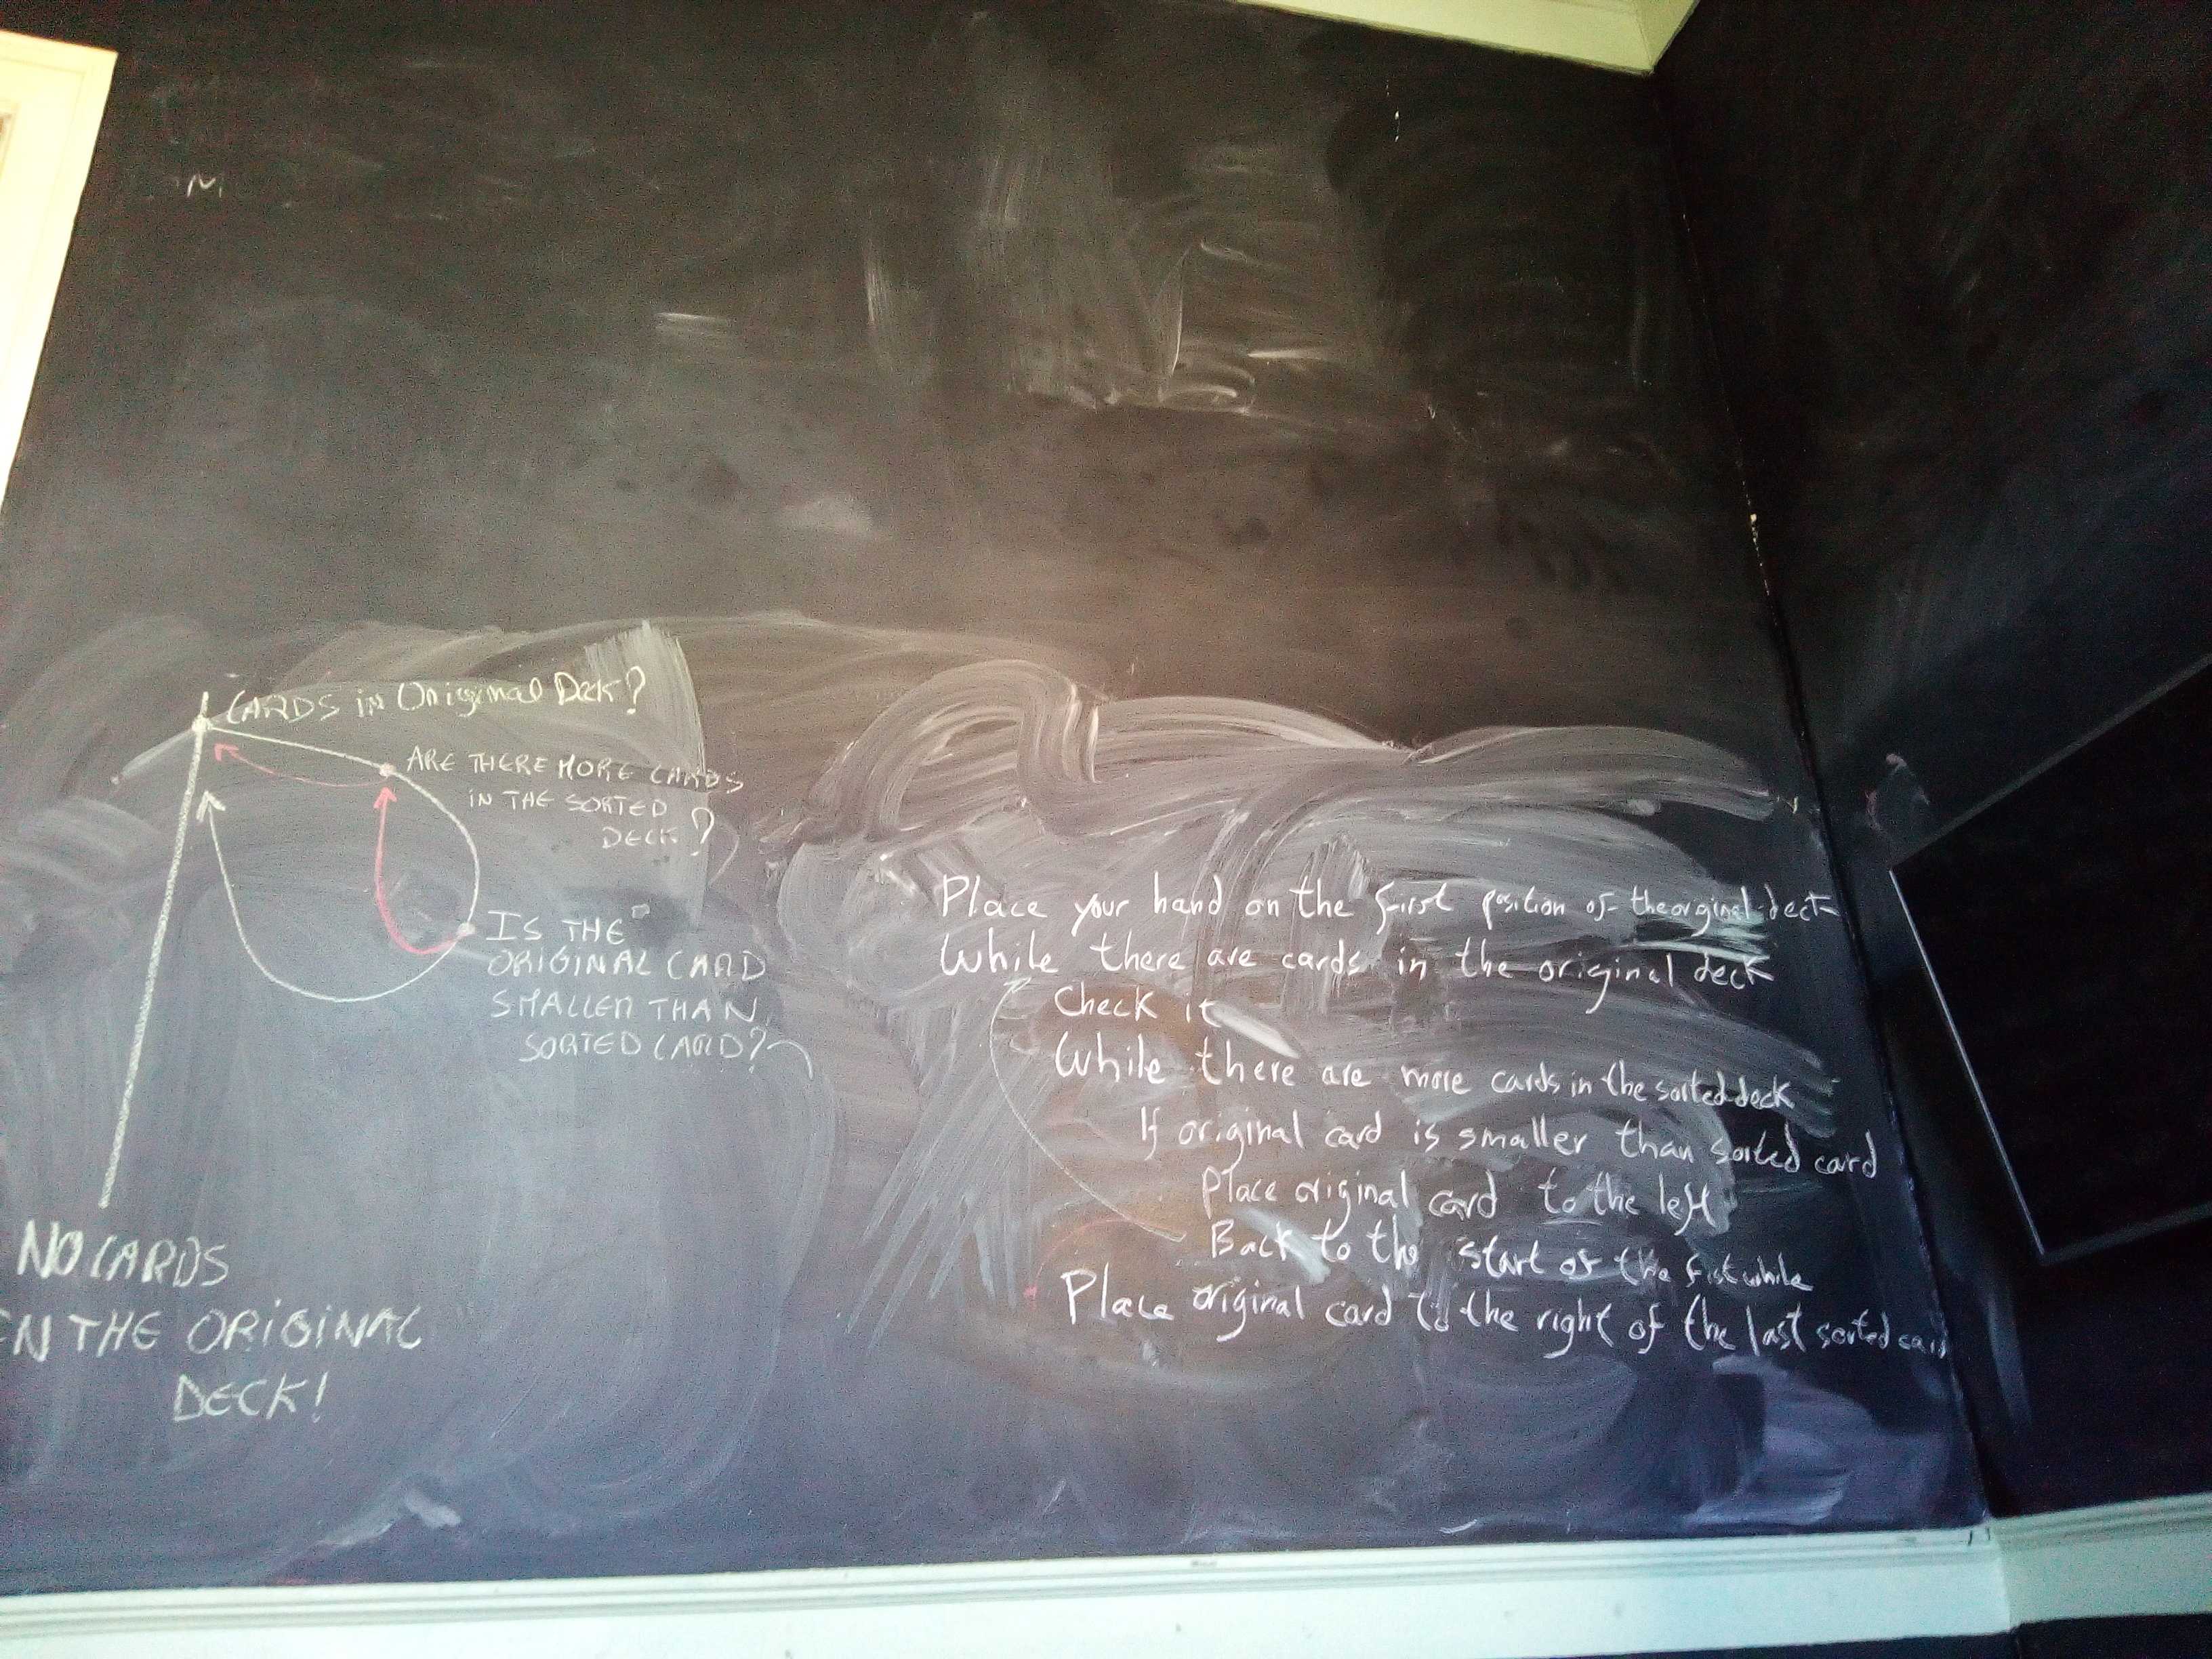 CARDS in Original Deck?
ARE THERE MORE CARDS
IN THE SORTED
DECK?
IS THE
ORIGINAL CARD
SMALLER THAN
SORTED CARD?
NO CARDS
IN THE ORIGINAL
DECK!
Place your hand on the first position of the orginal deck
While there are cards in the original deck
Check it
While there are more cards in the sorted deck
If original card is smaller than sorted card
Place original card to the left
Back to the start of the fist while
Place original card to the right of the last sorted card